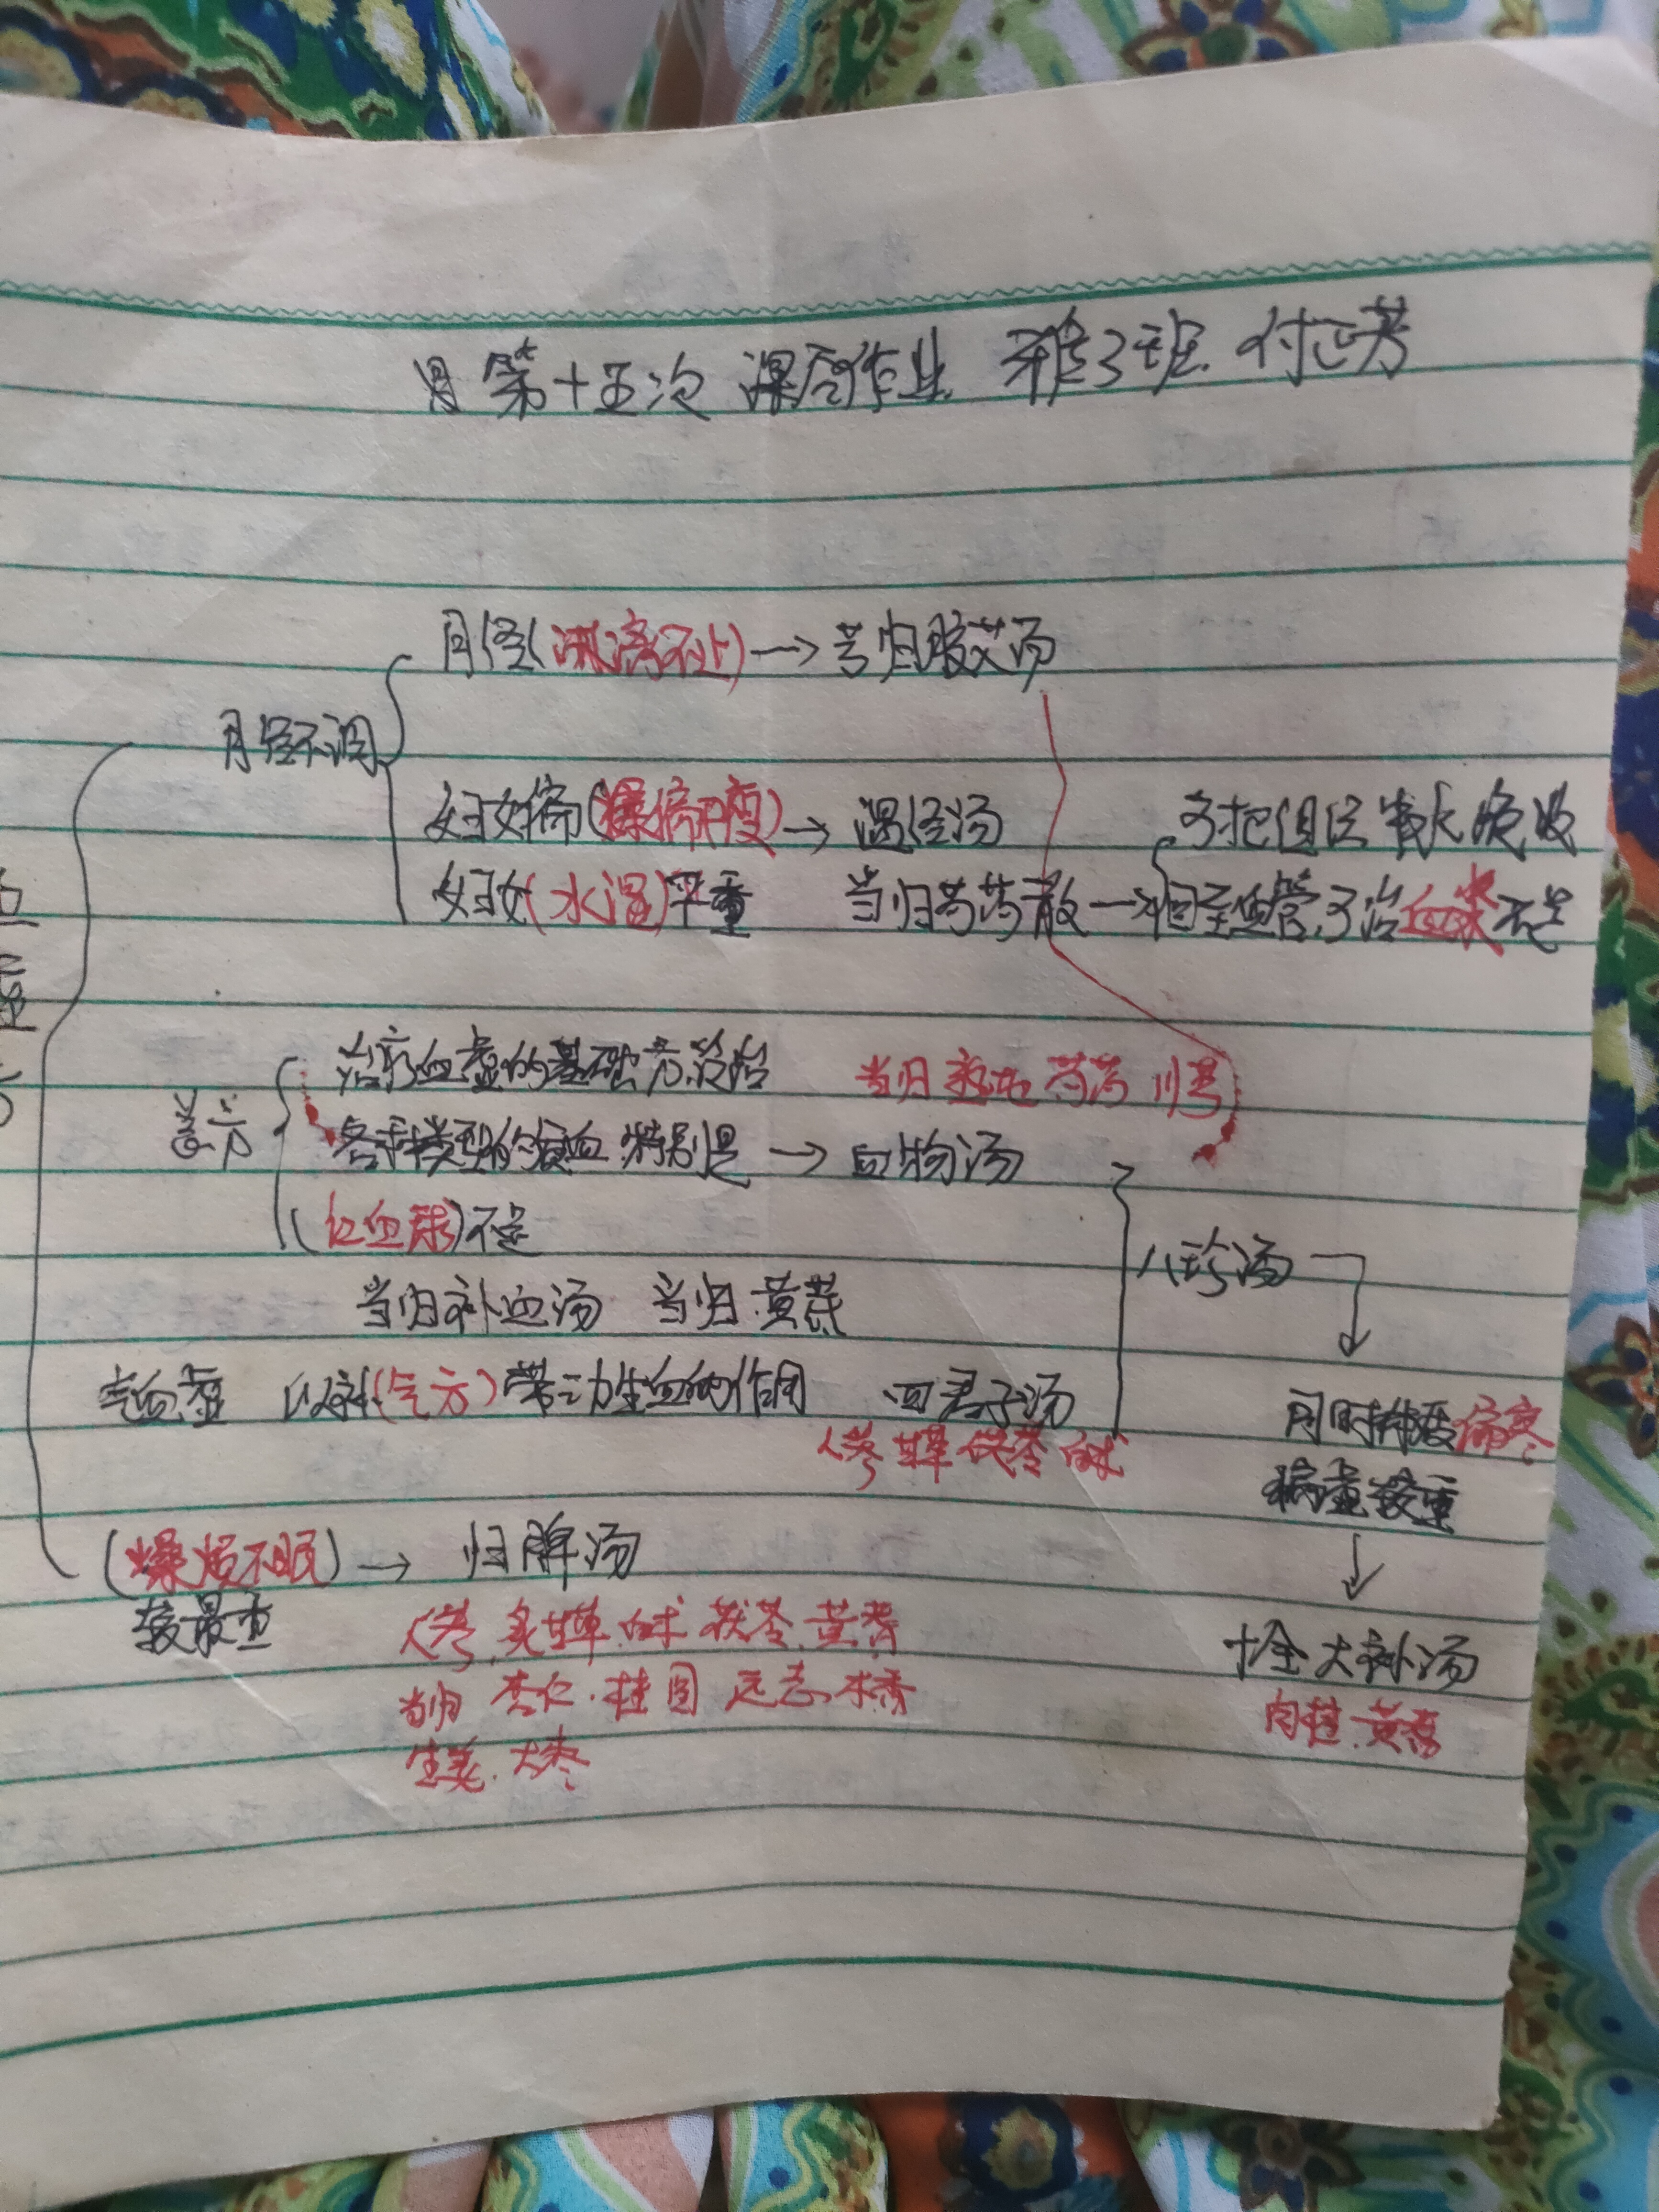 第十五次 课后作业 雅3班 付正芳
月经(淋漓不止)→芎归胶艾汤
月经不调
妇女偏(燥偏严重)→ 温经汤
可把组织 吸收
妇女(水湿)严重 当归芍药散→ 血管,可治血浆不足
治疗血虚的基础方,设治 当归 熟地 芍药 川芎
各种类型的贫血,特别是 → 四物汤
(红血球)不足
八珍汤
当归补血汤 当归.黄芪
气血虚 以补(气方)带动生血的作用 四君子汤
人参 甘草 茯苓 白术
同时 偏寒
病虚较重
(燥烦不眠)→ 归脾汤
较严重
人参,炙甘草.白术 茯苓.黄芪
十全大补汤
当归 枣仁.桂圆 远志.木香
肉桂.黄芪
生姜.大枣